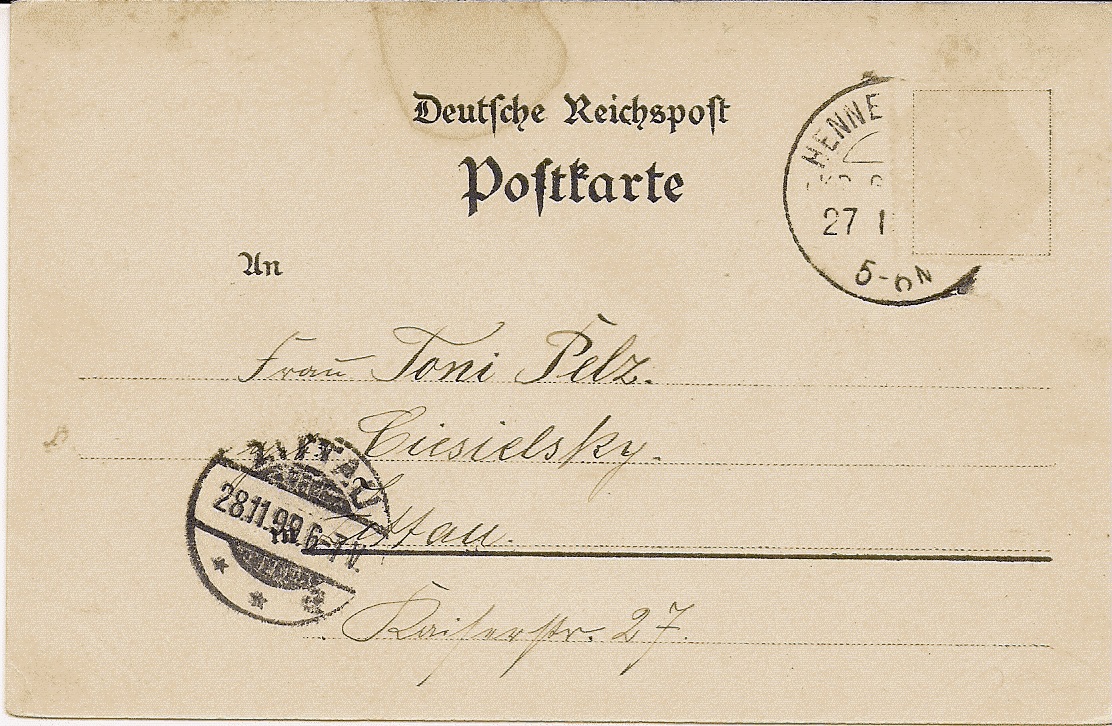 Deutsche Reichspost
Postkarte
HENNE
27 1
5-6N
An
Frau Toni Pelz.
Ciesielsky.
ZITTAU
28.11.99 6-7V.
in Zittau.
Kaiserstr. 27.